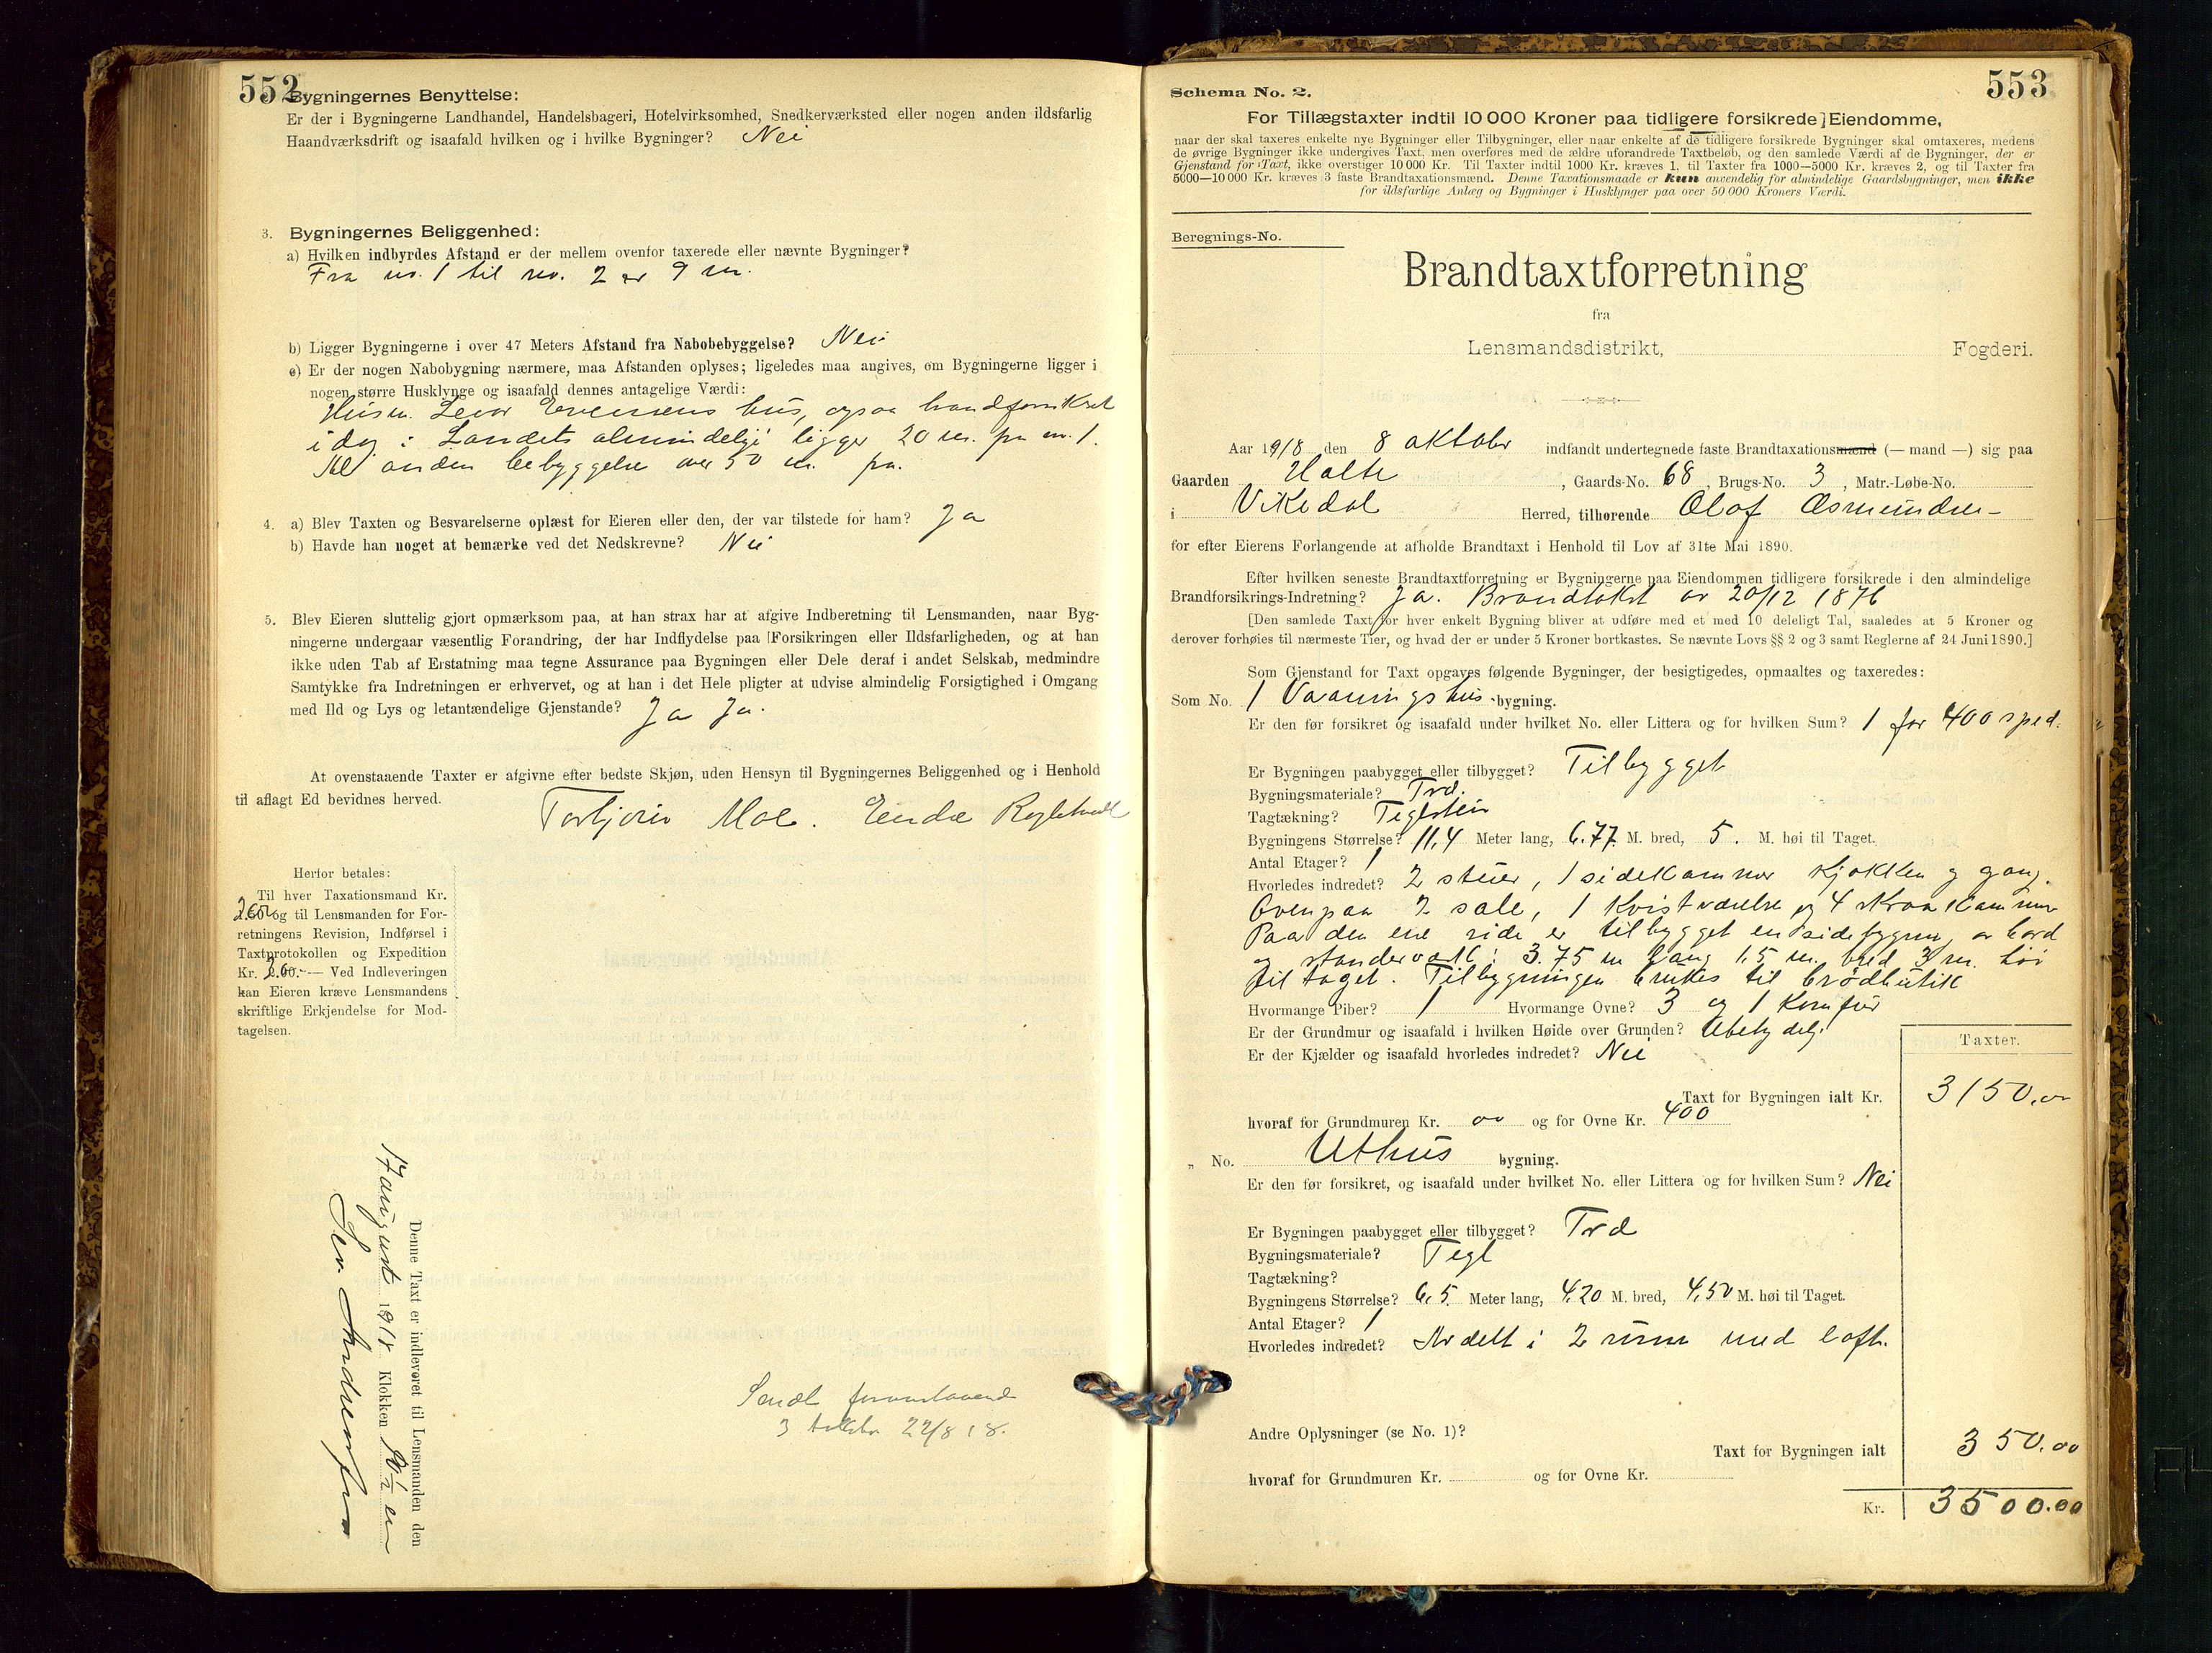 552
Bygningernes Benyttelse:
Er der i Bygningerne Landhandel, Handelsbageri, Hotelvirksomhed, Snedkerværksted eller nogen anden ildsfarlig
Haandværksdrift og isaafald hvilken og i hvilke Bygninger? Nei
3. Bygningernes Beliggenhed:
a) Hvilken indbyrdes Afstand er der mellem ovenfor taxerede eller nævnte Bygninger?
Fra no. 1 til no. 2 er 9 m.
b) Ligger Bygningerne i over 47 Meters Afstand fra Nabobebyggelse? Nei
c) Er der nogen Nabobygning nærmere, maa Afstanden oplyses; ligeledes maa angives, om Bygningerne ligger i
nogen større Husklynge og isaafald dennes antagelige Værdi:
Husm. hus, ogsaa brandforsikret
idag i Landets almindelige ligger 20 m. fra no. 1.
Al anden bebyggelse over 50 m. fra.
4. a) Blev Taxten og Besvarelserne oplæst for Eieren eller den, der var tilstede for ham? Ja
b) Havde han noget at bemærke ved det Nedskrevne? Nei
5. Blev Eieren sluttelig gjort opmærksom paa, at han strax har at afgive Indberetning til Lensmanden, naar Byg-
ningerne undergaar væsentlig Forandring, der har Indflydelse paa Forsikringen eller Ildsfarligheden, og at han
ikke uden Tab af Erstatning maa tegne Assurance paa Bygningen eller Dele deraf i andet Selskab, medmindre
Samtykke fra Indretningen er erhvervet, og at han i det Hele pligter at udvise almindelig Forsigtighed i Omgang
med Ild og Lys og letantændelige Gjenstande? Ja Ja.
At ovenstaaende Taxter er afgivne efter bedste Skjøn, uden Hensyn til Bygningernes Beliggenhed og i Henhold
til aflagt Ed bevidnes herved.
Torbjørn Moe.
Herfor betales:
Til hver Taxationsmand Kr.
2.50 og til Lensmanden for For-
retningens Revision, Indførsel i
Taxtprotokollen og Expedition
Kr. 2.00. — Ved Indleveringen
kan Eieren kræve Lensmandens
skriftlige Erkjendelse for Mod-
tagelsen.
Denne Taxt er indleveret til Lensmanden den
17 august 1918 Klokken
Sendt
3 22/8 18.
553
Schema No. 2.
For Tillægstaxter indtil 10 000 Kroner paa tidligere forsikrede Eiendomme,
naar der skal taxeres enkelte nye Bygninger eller Tilbygninger, eller naar enkelte af de tidligere forsikrede Bygninger skal omtaxeres, medens
de øvrige Bygninger ikke undergives Taxt, men overføres med de ældre uforandrede Taxtbeløb, og den samlede Værdi af de Bygninger, der er
Gjenstand for Taxt, ikke overstiger 10 000 Kr. Til Taxter indtil 1000 Kr. kræves 1, til Taxter fra 1000—5000 Kr. kræves 2, og til Taxter fra
5000—10 000 Kr. kræves 3 faste Brandtaxationsmænd. Denne Taxationsmaade er kun anvendelig for almindelige Gaardsbygninger, men ikke
for ildsfarlige Anlæg og Bygninger i Husklynger paa over 50 000 Kroners Værdi.
Beregnings-No.
Brandtaxtforretning
fra
Lensmandsdistrikt, Fogderi.
Aar 1918 den 8 oktober indfandt undertegnede faste Brandtaxationsmænd (— mand —) sig paa
Gaarden Halte, Gaards-No. 68, Brugs-No. 3, Matr.-Løbe-No.
i Vikedal Herred, tilhørende Olaf Asmundsen
for efter Eierens Forlangende at afholde Brandtaxt i Henhold til Lov af 31te Mai 1890.
Efter hvilken seneste Brandtaxtforretning er Bygningerne paa Eiendommen tidligere forsikrede i den almindelige
Brandforsikrings-Indretning? Ja. Brandtakst av 20/12 1876
[Den samlede Taxt for hver enkelt Bygning bliver at udføre med et med 10 deleligt Tal, saaledes at 5 Kroner og
derover forhøies til nærmeste Tier, og hvad der er under 5 Kroner bortkastes. Se nævnte Lovs §§ 2 og 3 samt Reglerne af 24 Juni 1890.]
Som Gjenstand for Taxt opgaves følgende Bygninger, der besigtigedes, opmaaltes og taxeredes:
Som No. 1 Vaaningshus-bygning.
Er den før forsikret og isaafald under hvilket No. eller Littera og for hvilken Sum? 1 for 400 spd.
Er Bygningen paabygget eller tilbygget? Tilbygget
Bygningsmateriale? Træ.
Tagtækning? Teglsten
Bygningens Størrelse? 11,4 Meter lang, 6.77 M. bred, 5. M. høi til Taget.
Antal Etager? 1
Hvorledes indredet? 2 stuer, 1 sidekammer kjøkken og gang.
Ovenpaa 2 sale, 1 kvistværelse og 4 skraakammer
Paa den ene side er tilbygget en sidebygning av bord
og standerverk: 3.75 m lang 1,5 m. bred 3 m. høi
til taget. Tilbygningen brukes til brødbutik
Hvormange Piber? 1 Hvormange Ovne? 3 og 1 komfur
Er der Grundmur og isaafald i hvilken Høide over Grunden? Ubetydelig
Er der Kjælder og isaafald hvorledes indredet? Nei
Taxter.
Taxt for Bygningen ialt Kr. 3150.00
hvoraf for Grundmuren Kr. 00 og for Ovne Kr. 400
„ No. Uthus bygning.
Er den før forsikret, og isaafald under hvilket No. eller Littera og for hvilken Sum? Nei
Er Bygningen paabygget eller tilbygget? Træ
Bygningsmateriale? Tegl
Tagtækning?
Bygningens Størrelse? 6,5 Meter lang, 4,20 M. bred, 4,50 M. høi til Taget.
Antal Etager? 1
Hvorledes indredet? Avdelt i 2 rum med loft.
Andre Oplysninger (se No. 1)?
Taxt for Bygningen ialt 350.00
hvoraf for Grundmuren Kr. og for Ovne Kr.
Kr. 3500.00